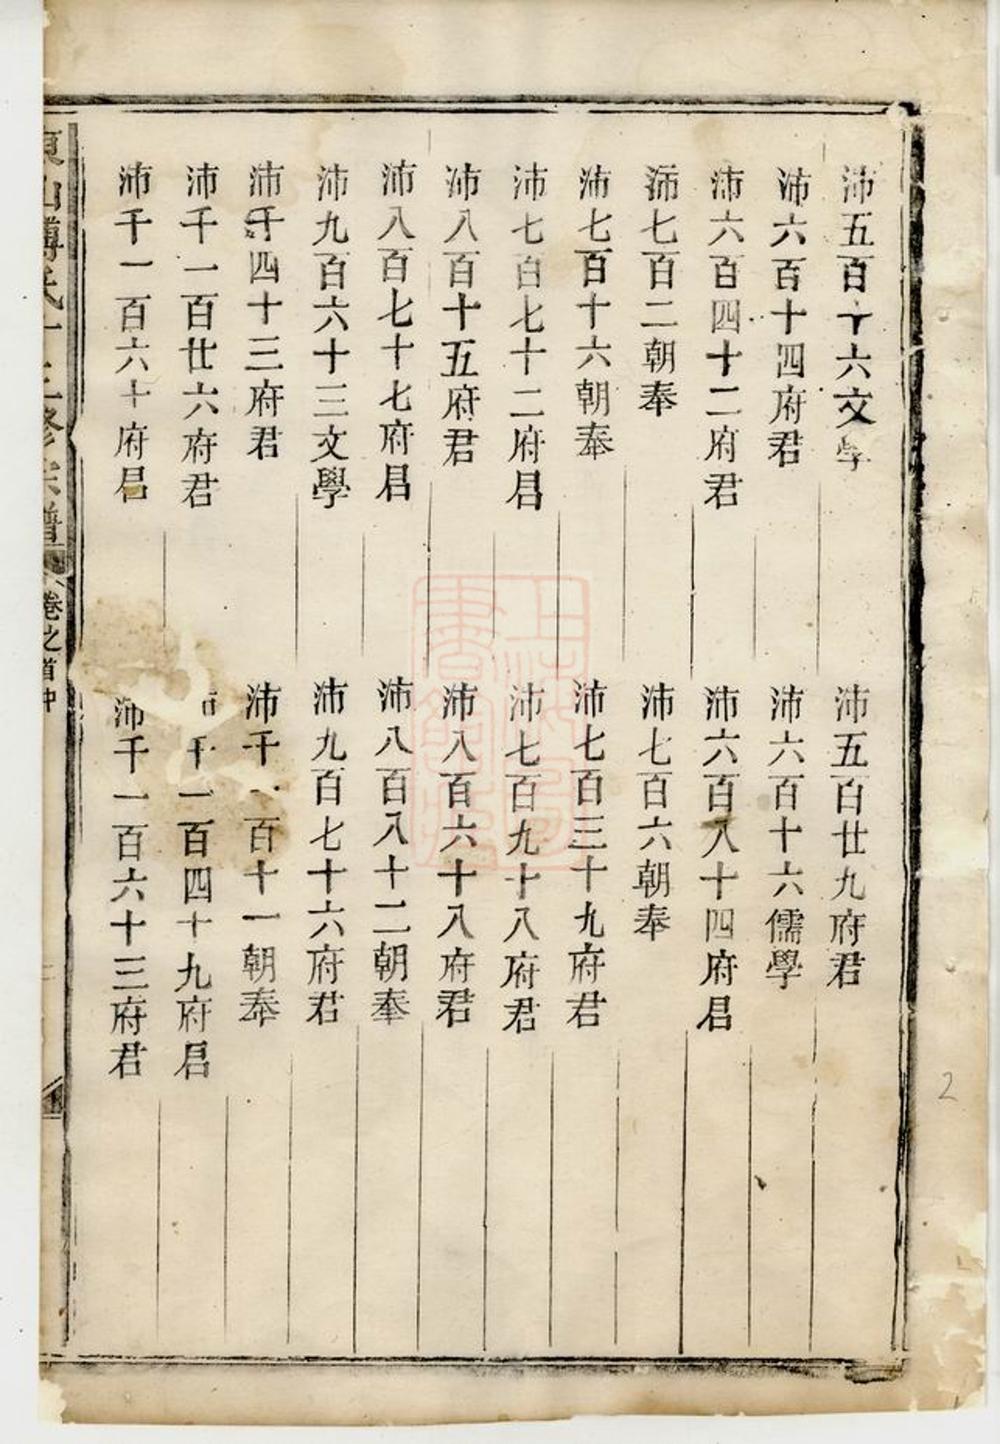 沛五百十六文學
沛五百廿九府君
沛六百十四府君
沛六百十六儒學
沛六百四十二府君
沛六百八十四府君
沛七百二朝奉
沛七百六朝奉
沛七百十六朝奉
沛七百三十九府君
沛七百七十二府君
沛七百九十八府君
沛八百十五府君
沛八百六十八府君
沛八百七十七府君
沛八百八十二朝奉
沛九百六十三文學
沛九百七十六府君
沛千四十三府君
沛千一百十一朝奉
沛千一百廿六府君
沛千一百四十九府君
沛千一百六十府君
沛千一百六十三府君
東山傅氏十三修宗譜
卷之首中
2